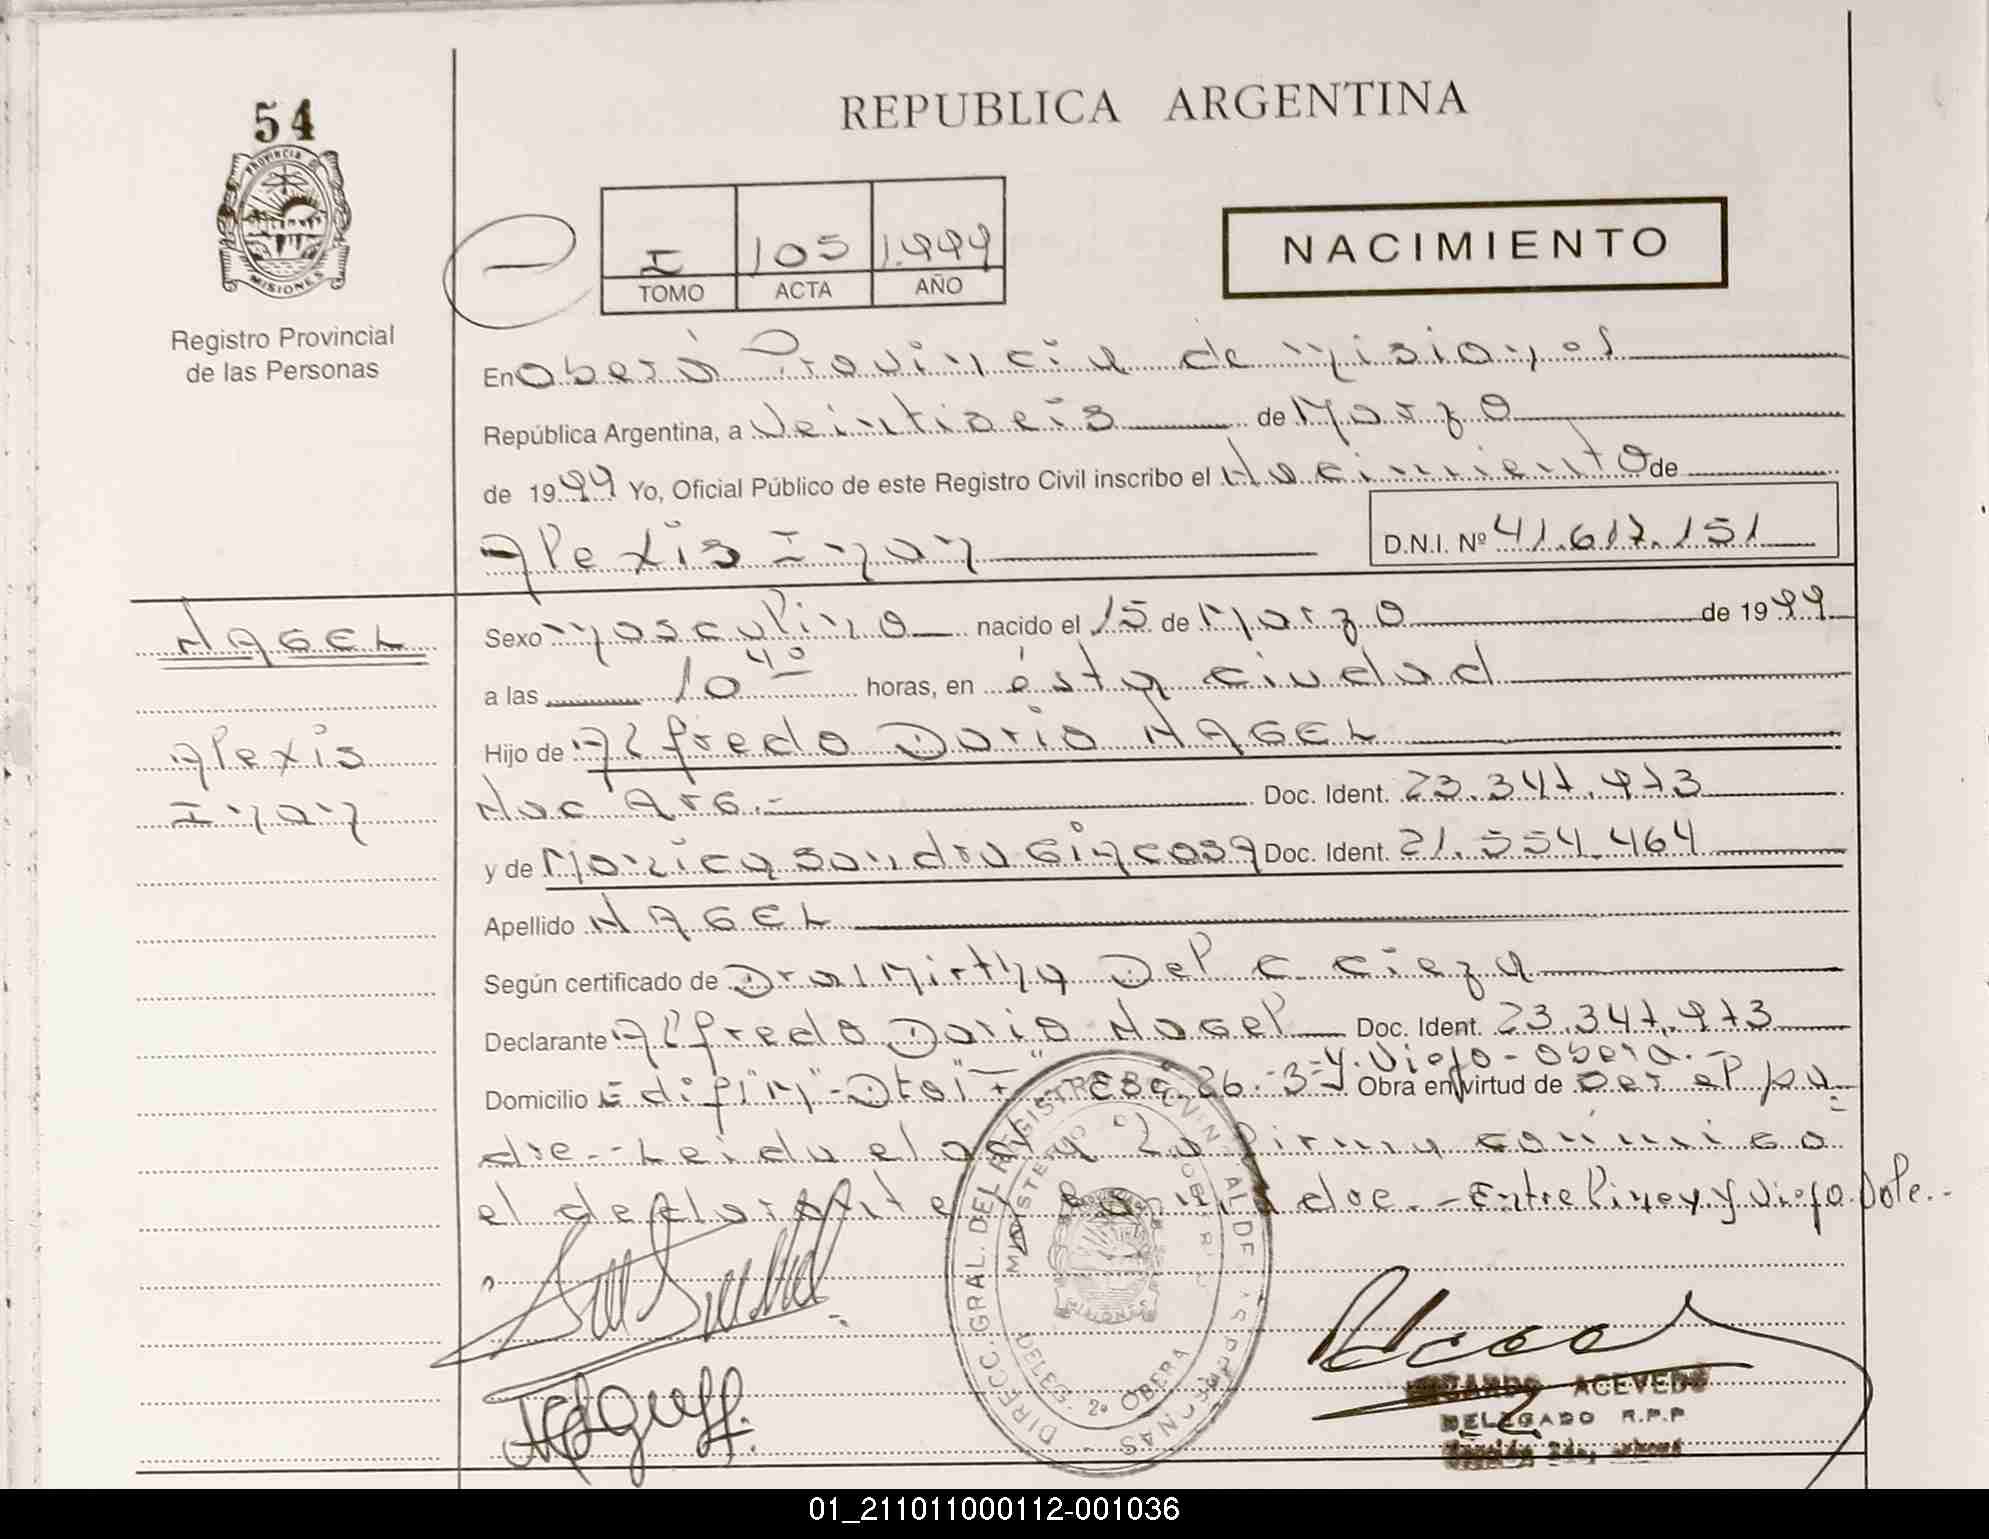 54
PROVINCIA DE
MISIONES
Registro Provincial
de las Personas
REPUBLICA ARGENTINA
I 105 1.999
TOMO ACTA AÑO
NACIMIENTO
En Oberá Provincia de Misiones
República Argentina, a Veintiseis de Marzo
de 1999 Yo, Oficial Público de este Registro Civil inscribo el Nacimiento de
Alexis Inan
D.N.I. Nº 41.617.151
NAGEL
Alexis
Inan
Sexo Masculino nacido el 15 de Marzo de 1999
a las 10 40 horas, en ésta ciudad
Hijo de Alfredo Dario NAGEL
Nac Arg.- Doc. Ident. 23.347.973
y de Monica Sandra Giacosa Doc. Ident. 21.554.464
Apellido NAGEL
Según certificado de Dra Mirtha Del C Cieza
Declarante Alfredo Dario Nagel Doc. Ident. 23.347.973
Y. Viejo - Oberá.-
Domicilio Edif "M" - Dto "I" Esc. 26.-3= Obra en virtud de ser el pa
dre.- Leida el acta la firma conmigo
el declarante doc. - Entre lineas Y. Viejo. Vale.-
DIRECC. GRAL. DEL REGISTRO PROVINCIAL DE LAS PERSONAS
MINISTERIO DE GOBIERNO
MISIONES
DELEG. 2º OBERA
ACEVEDO
DELEGADO R.P.P
01_211011000112-001036